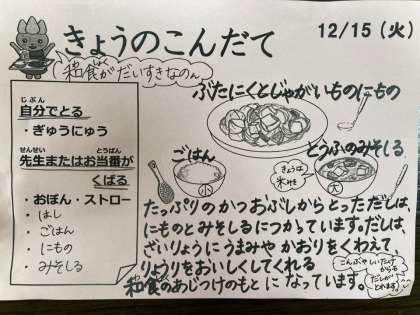 きょうのこんだて
12/15(火)
和食がだいすきなのん
ぶたにくとじゃがいものにもの
じぶん
自分でとる
・ぎゅうにゅう
せんせい とうばん
先生またはお当番が
くばる
・おぼん・ストロー
・はし
・ごはん
・にもの
・みそしる
ごはん
小
きょうは
米みそ
とうふのみそしる
大
たっぷりのかつおぶしからとっただしは、
にものとみそしるにつかっています。だしは、
ざいりょうにうまみやかおりをくわえて、
りょうりをおいしくしてくれる
和食のあじつけのもとになっています。
こんぶやしいたけ
からも
だしが
とれます。